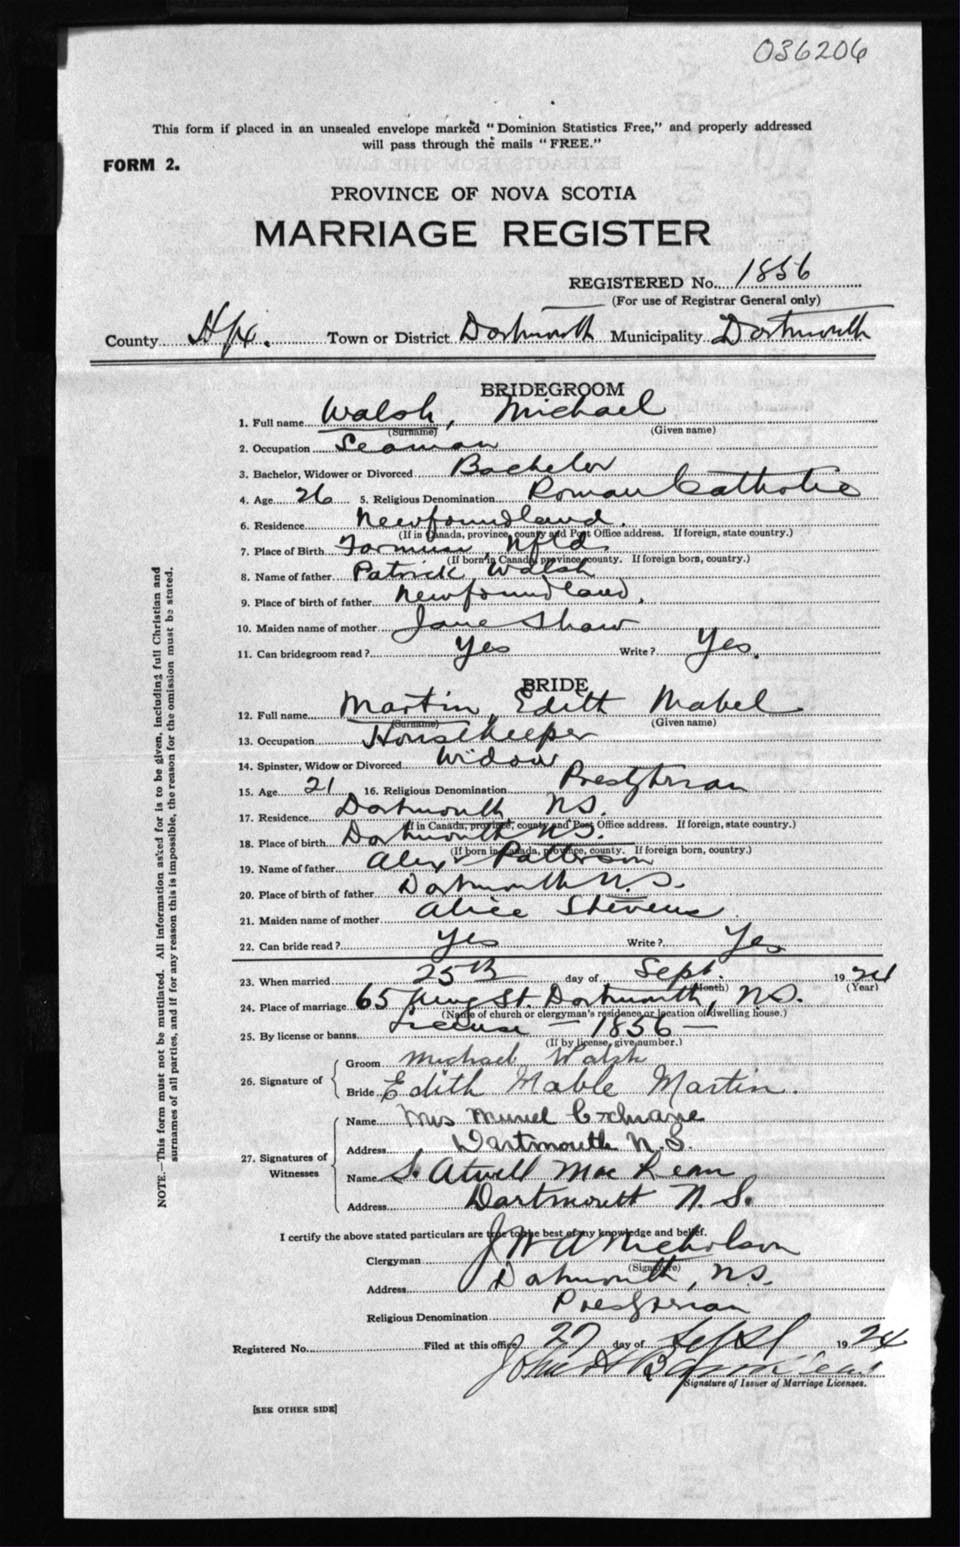 036206
This form if placed in an unsealed envelope marked "Dominion Statistics Free," and properly addressed
will pass through the mails "FREE."
FORM 2.
PROVINCE OF NOVA SCOTIA
MARRIAGE REGISTER
REGISTERED No. 1856
(For use of Registrar General only)
County Hfx. Town or District Dartmouth Municipality Dartmouth
BRIDEGROOM
1. Full name Walsh, Michael
(Surname) (Given name)
2. Occupation Seaman
3. Bachelor, Widower or Divorced Bachelor
4. Age 26 5. Religious Denomination Roman Catholic
6. Residence Newfoundland.
(If in Canada, province, county and Post Office address. If foreign, state country.)
7. Place of Birth Nfld.
(If born in Canada, province, county. If foreign born, country.)
8. Name of father Patrick Walsh
9. Place of birth of father Newfoundland.
10. Maiden name of mother Jane Shaw
11. Can bridegroom read? Yes Write? Yes.
BRIDE
12. Full name Martin, Edith Mabel
(Surname) (Given name)
13. Occupation Housekeeper
14. Spinster, Widow or Divorced Widow
15. Age 21 16. Religious Denomination Presbyterian
17. Residence Dartmouth N.S.
(If in Canada, province, county and Post Office address. If foreign, state country.)
18. Place of birth Dartmouth N.S.
(If born in Canada, province, county. If foreign born, country.)
19. Name of father Alex Patterson
20. Place of birth of father Dartmouth N.S.
21. Maiden name of mother Alice Stevens
22. Can bride read? Yes Write? Yes
23. When married 25th day of Sept. 1924
(Month) (Year)
24. Place of marriage 65 King St. Dartmouth, N.S.
(Name of church or clergyman's residence or location of dwelling house.)
25. By license or banns License - 1856 -
(If by license, give number.)
26. Signature of Groom Michael Walsh
Bride Edith Mable Martin.
27. Signatures of Witnesses
Name Mrs Muriel Cochrane
Address Dartmouth N.S.
Name S. Atwell MacKean
Address Dartmouth N.S.
I certify the above stated particulars are true to the best of my knowledge and belief.
Clergyman J W A Nicholson
(Signature)
Address Dartmouth, N.S.
Religious Denomination Presbyterian
Registered No. Filed at this office 27 day of Sept 1924
John H
Signature of Issuer of Marriage Licenses.
[SEE OTHER SIDE]
NOTE.—This form must not be mutilated. All information asked for is to be given, including full Christian and
surnames of all parties, and if for any reason this is impossible, the reason for the omission must be stated.